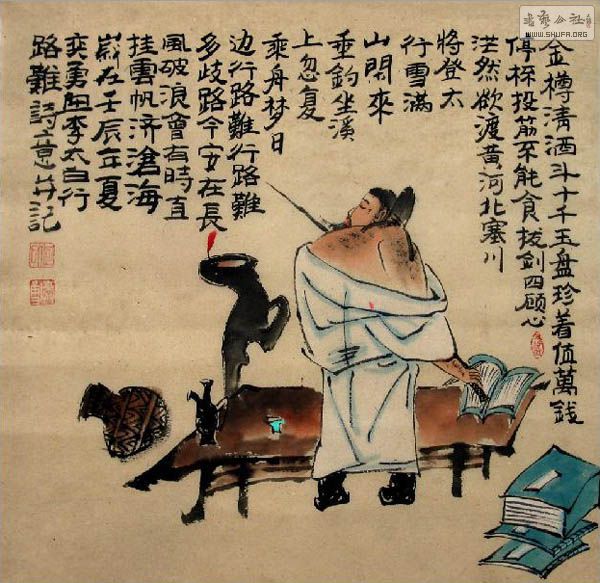 金樽清酒斗十千玉盘珍羞值萬錢
停杯投筯不能食拔剑四顾心
茫然欲渡黄河北塞川
将登太
行雪滿
山閑來
垂钓坐溪
上忽复
乘舟梦日
边行路難行路難
多歧路今安在長
風破浪會有時直
挂雲帆济滄海
歲在壬辰年夏
奕勇画李太白行
路難詩意并記
书艺公社
WWW.SHUFA.ORG